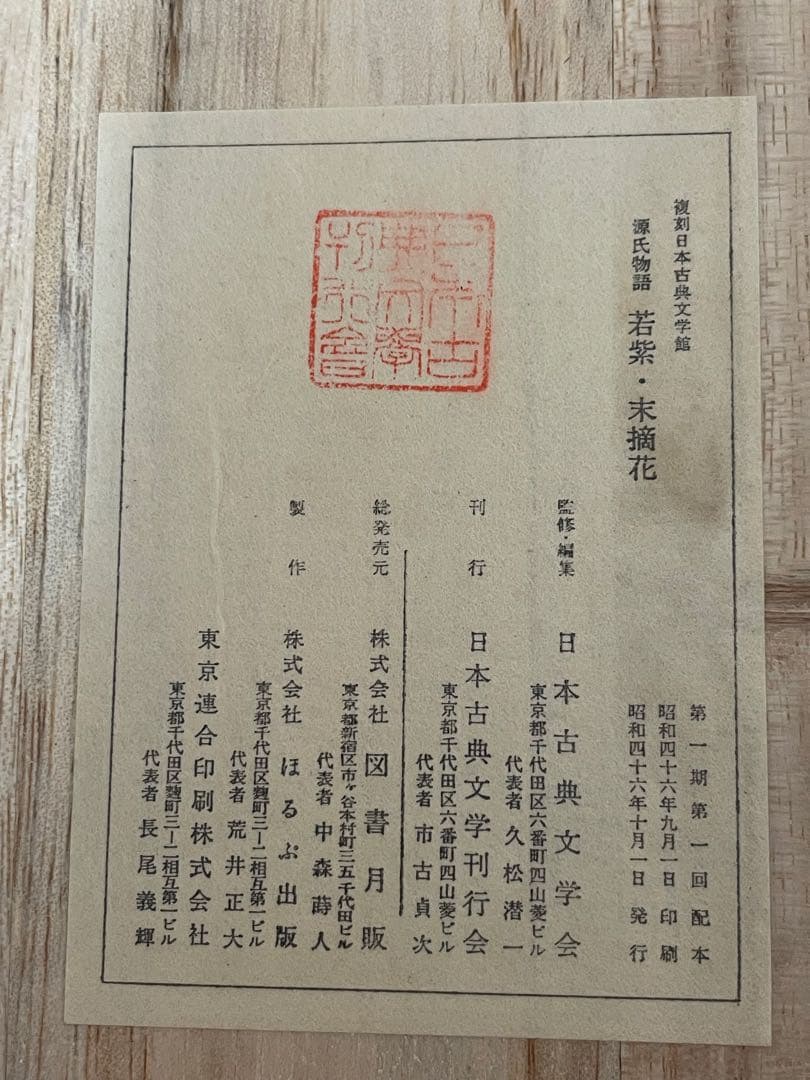 複刻日本古典文学館
源氏物語 若紫・末摘花
第一期第一回配本
昭和四十六年九月一日 印刷
昭和四十六年十月一日 発行
監修・編集 日本古典文学会
東京都千代田区六番町四山菱ビル
代表者 久松潜一
刊行 日本古典文学刊行会
東京都千代田区六番町四山菱ビル
代表者 市古貞次
総発売元 株式会社 図書月販
東京都新宿区市ヶ谷本村町三五千代田ビル
代表者 中森蒔人
製作 株式会社 ほるぷ出版
東京都千代田区麹町三ー二相互第一ビル
代表者 荒井正大
東京連合印刷株式会社
東京都千代田区麹町三ー二相互第一ビル
代表者 長尾義輝
日本古
典文學
刊行會